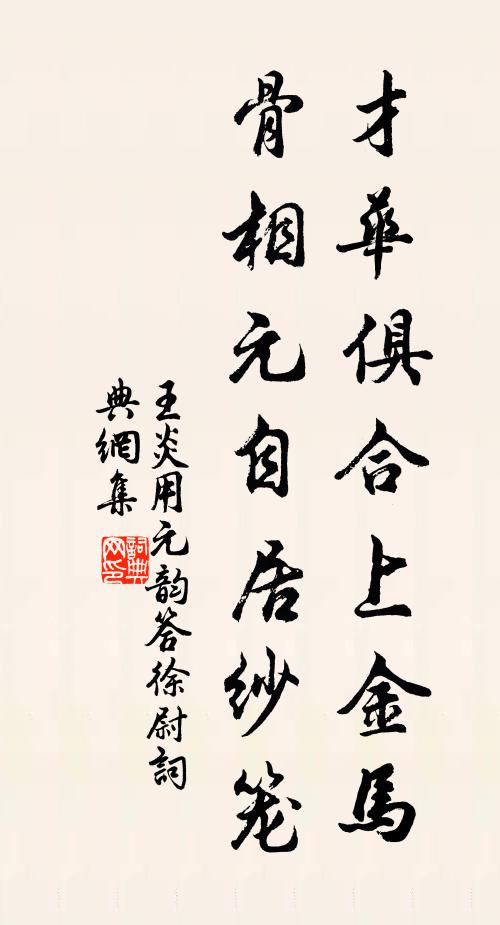 才華俱合上金馬
骨相元自居紗笼
王炎用元韵答徐尉詞
典網集
詞典
网印